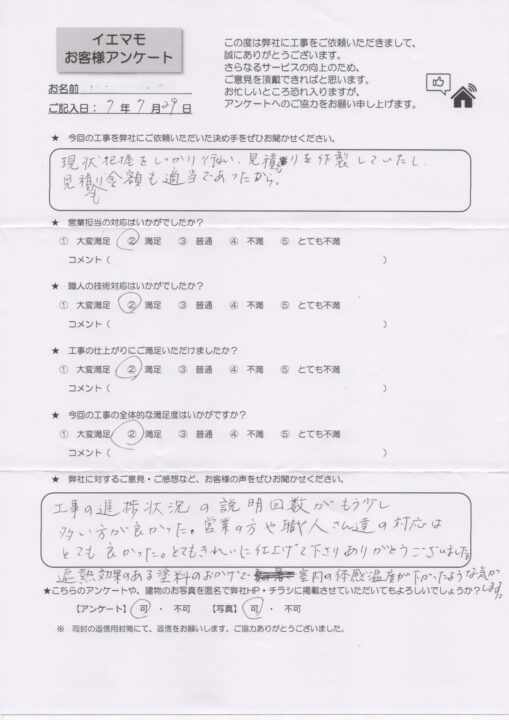 イエマモ
お客様アンケート
この度は弊社に工事をご依頼いただきまして、
誠にありがとうございます。
さらなるサービスの向上のため、
ご意見を頂戴できればと思います。
お忙しいところ恐れ入りますが、
アンケートへのご協力をお願い申し上げます。
お名前
ご記入日:7年7月29日
★ 今回の工事を弊社にご依頼いただいた決め手をぜひお聞かせください。
現状把握をしっかり行ない、見積りを作製していたし、
見積り金額も適当であったから。
★ 営業担当の対応はいかがでしたか?
① 大変満足 ② 満足 ③ 普通 ④ 不満 ⑤ とても不満
コメント( )
★ 職人の技術対応はいかがでしたか?
① 大変満足 ② 満足 ③ 普通 ④ 不満 ⑤ とても不満
コメント( )
★ 工事の仕上がりにご満足いただけましたか?
① 大変満足 ② 満足 ③ 普通 ④ 不満 ⑤ とても不満
コメント( )
★ 今回の工事の全体的な満足度はいかがですか?
① 大変満足 ② 満足 ③ 普通 ④ 不満 ⑤ とても不満
コメント( )
★ 弊社に対するご意見・ご感想など、お客様の声をぜひお聞かせください。
工事の進捗状況の説明回数がもう少し
多い方が良かった。営業の方や職人さん達の対応は
とても良かった。とてもきれいに仕上げて下さりありがとうございました。
遮熱効果のある塗料のおかげで室内の体感温度が下がったような気がします。
★こちらのアンケートや、建物のお写真を匿名で弊社HP・チラシに掲載させていただいてもよろしいでしょうか?
【アンケート】 可 ・ 不可 【写真】 可 ・ 不可
※ 同封の返信用封筒にて、返信をお願いします。ご協力ありがとうございました。